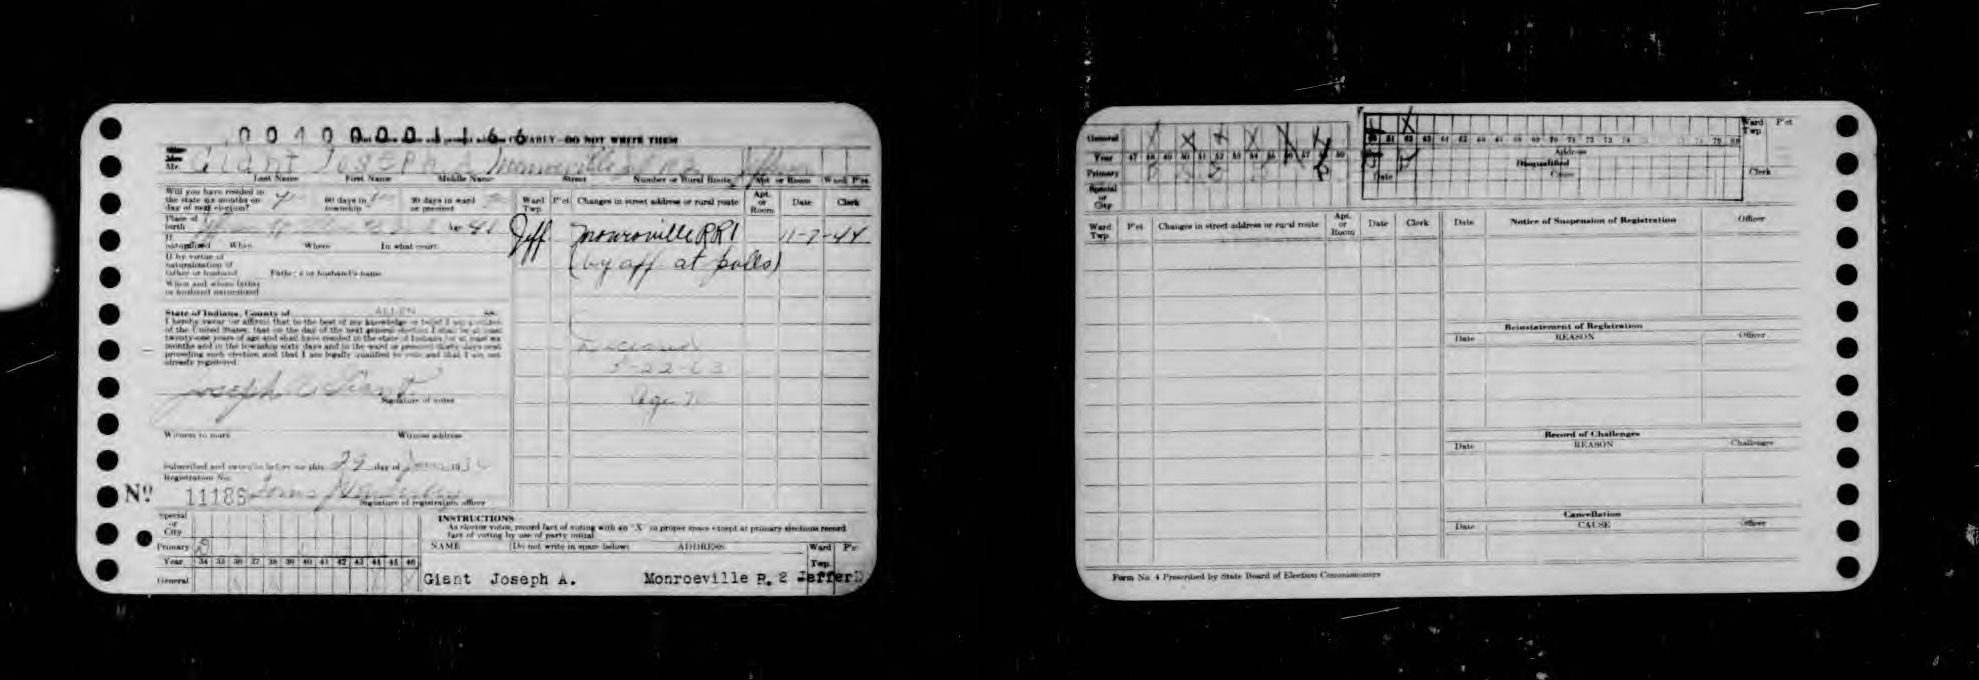 00400001166
EARLY - DO NOT WRITE THEM
Mr. Giant Joseph A Monroeville R 2 Jefferson
Last Name First Name Middle Name Street Number or Rural Route Apt. or Room Ward P'ct
Will you have resided in
the state six months on 60 days in 30 days in ward
day of next election? township or precinct
Place of
birth Age 41
If
naturalized When Where In what court
If by virtue of
naturalization of
father or husband Father's or husband's name
When and where father
or husband naturalized
State of Indiana, County of ALLEN ss.
I hereby swear or affirm that to the best of my knowledge or belief I am a citizen
of the United States, that on the day of the next general election I shall be at least
twenty-one years of age and shall have resided in the state of Indiana for at least six
months and in the township sixty days and in the ward or precinct thirty days next
preceding such election and that I am legally qualified to vote and that I am not
already registered.
Joseph A Giant
Signature of voter
Witness to mark Witness address
Subscribed and sworn to before me this 29 day of
Registration No.
No 11186
Signature of registration officer
Ward Twp. P'ct Changes in street address or rural route Apt. or Room Date Clerk
Jeff Monroeville RR1 11-7-44
(by aff at polls)
Deceased
5-22-63
Age 7
Special
or
City
Primary D
Year 34 35 36 37 38 39 40 41 42 43 44 45 46
General
INSTRUCTIONS
As elector votes, record fact of voting with an "X" in proper space except at primary elections record
fact of voting by use of party initial
NAME (Do not write in space below) ADDRESS Ward Twp. P'ct
Giant Joseph A. Monroeville R. 2 Jeffer
General
Year 47 48 49 50 51 52 53 54 55 56 57 59
Primary
Special
or
City
60 61 62 63 64 65 66 67 68 69 70 71 72 73 74 78 79 80
Ward Twp. P'ct
Address
Disqualified
Date Cause Clerk
Ward Twp. P'ct Changes in street address or rural route Apt. or Room Date Clerk
Date Notice of Suspension of Registration Officer
Reinstatement of Registration
Date REASON Officer
Record of Challenges
Date REASON Challenger
Cancellation
Date CAUSE Officer
Form No. 4 Prescribed by State Board of Election Commissioners